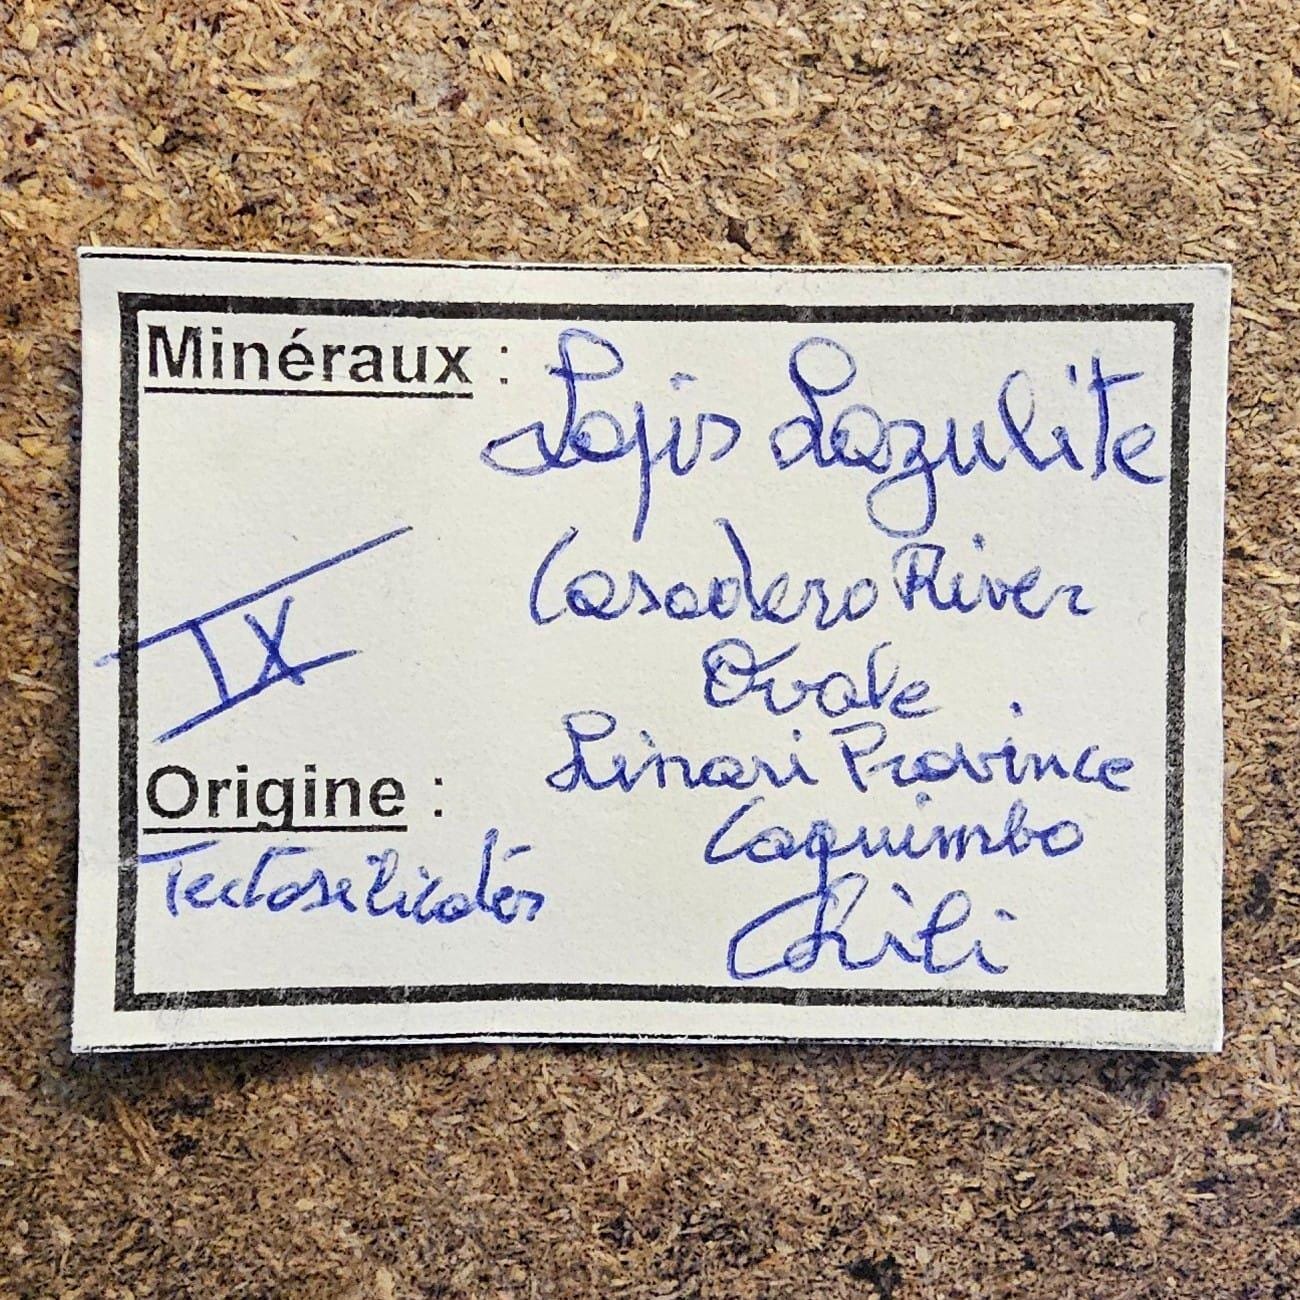 Minéraux : Lapis Lazulite
Casadero River
IX
Ovale
Linari Province
Origine :
Coquimbo
Tectosilicates
Chili